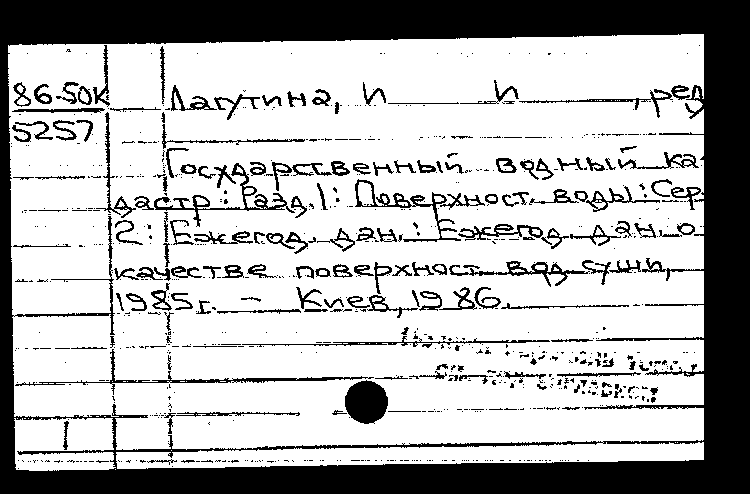 86-50К Лагутина, И И , ред
5257
Государственный водный ка-
дастр: Разд. 1: Поверхност. воды: Сер.
2: Ежегод. дан.: Ежегод. дан. о
качестве поверхност. вод суши,
1985г. - Киев, 1986.
1